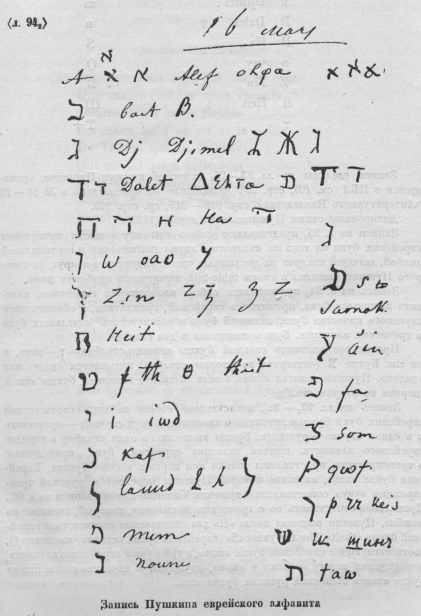 (л. 94₂)
16 мая
A א א Alef ohfa א א א
ב bait B.
ג Dj Djimel Ж ג
ד ד Dalet Δелта ד ד
ה ה ה Ha ה
ו W oao у
ז Zin z z
ח Heit
ט f th θ thit
י i iwd
כ Kaf
ל lamid
מ mim
נ noune
ס s
Samok
ע áin
פ fa
צ som
ק qwof
ר р rr
ש ш шинъ
ת taw
Запись Пушкина еврейского алфавита